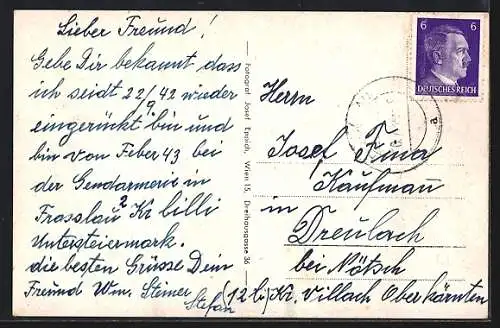 Lieber Freund!
Gebe Dir bekannt dass
ich seidt 22/9 42 wieder
eingerückt bin und
bin von Feber 43 bei
der Gendarmerie in
Frasslau Kr Cilli
Untersteiermark.
die besten Grüsse Dein
Freund Wm. Steiner
Stefan
Fotograf Josef Eppich, Wien 15, Dreihausgasse 36
6 6
DEUTSCHES REICH
a
Herrn
Josef
Kaufman
in
Dreulach
bei Nötsch
Kr. Villach Oberkärnten